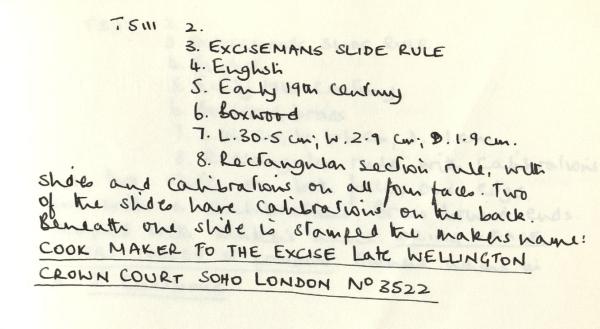 TS111 2.
3. EXCISEMANS SLIDE RULE
4. English
5. Early 19th Century
6. Boxwood
7. L. 30.5 cm; W. 2.9 cm; D. 1.9 cm.
8. Rectangular section rule, with
slides and calibrations on all four faces. Two
of the slides have calibrations on the back
Beneath one slide is stamped the makers name:
COOK MAKER TO THE EXCISE Late WELLINGTON
CROWN COURT SOHO LONDON No 3522